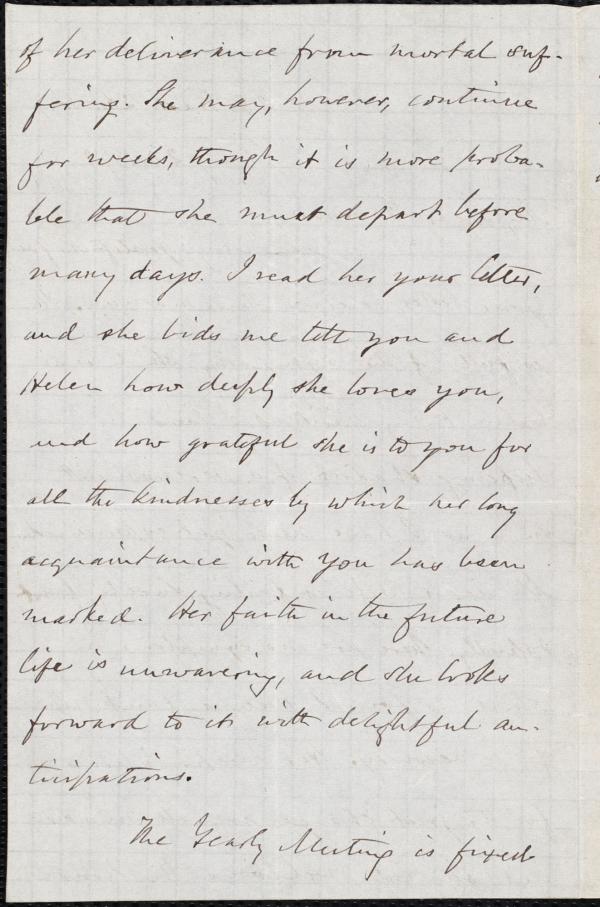 of her deliverance from mortal suf-
fering. She may, however, continue
for weeks, though it is more proba-
ble that she must depart before
many days. I read her your letter,
and she bids me tell you and
Helen how deeply she loves you,
and how grateful she is to you for
all the kindnesses by which her long
acquaintance with you has been
marked. Her faith in the future
life is unwavering, and she looks
forward to it with delightful an-
ticipations.
The Yearly Meeting is fixed